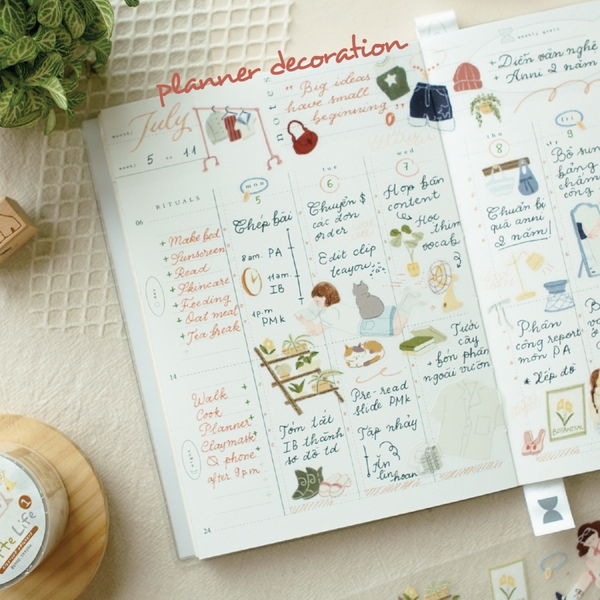 planner decoration
July
MONTH/
WEEK/ 5 to 11
notes
" Big ideas
have small
beginning "
weekly goals
+ Diễn văn nghệ
+ Anni 2 năm
RITUALS
06
+ Make bed
+ Sunscreen
+ Read
+ Skincare
+ Feeding
+ Oat meal
+ Tea break
14
Walk
Cook
Planner
Claymask
Q. phone
after 9pm
24
mon
5
Chép bài
8am. PA
11am.
IB
4p.m
PMk
Tóm tắt
IB thành
sơ đồ td
tue
6
Chuyển $
các đơn
order
Edit clip
leayou
Pre-read
slide PMk
Tập nhảy
Ăn
linhoan
wed
7
Họp bàn
content
Học
thêm
vocab
Tưới
cây
+ bón phân
ngoài vườn
thu
8
Chuẩn bị
quà anni
2 năm!
Phần
công report
môn PA
* Xếp đồ
fri
9
Bổ sun
bảng
chấm
công